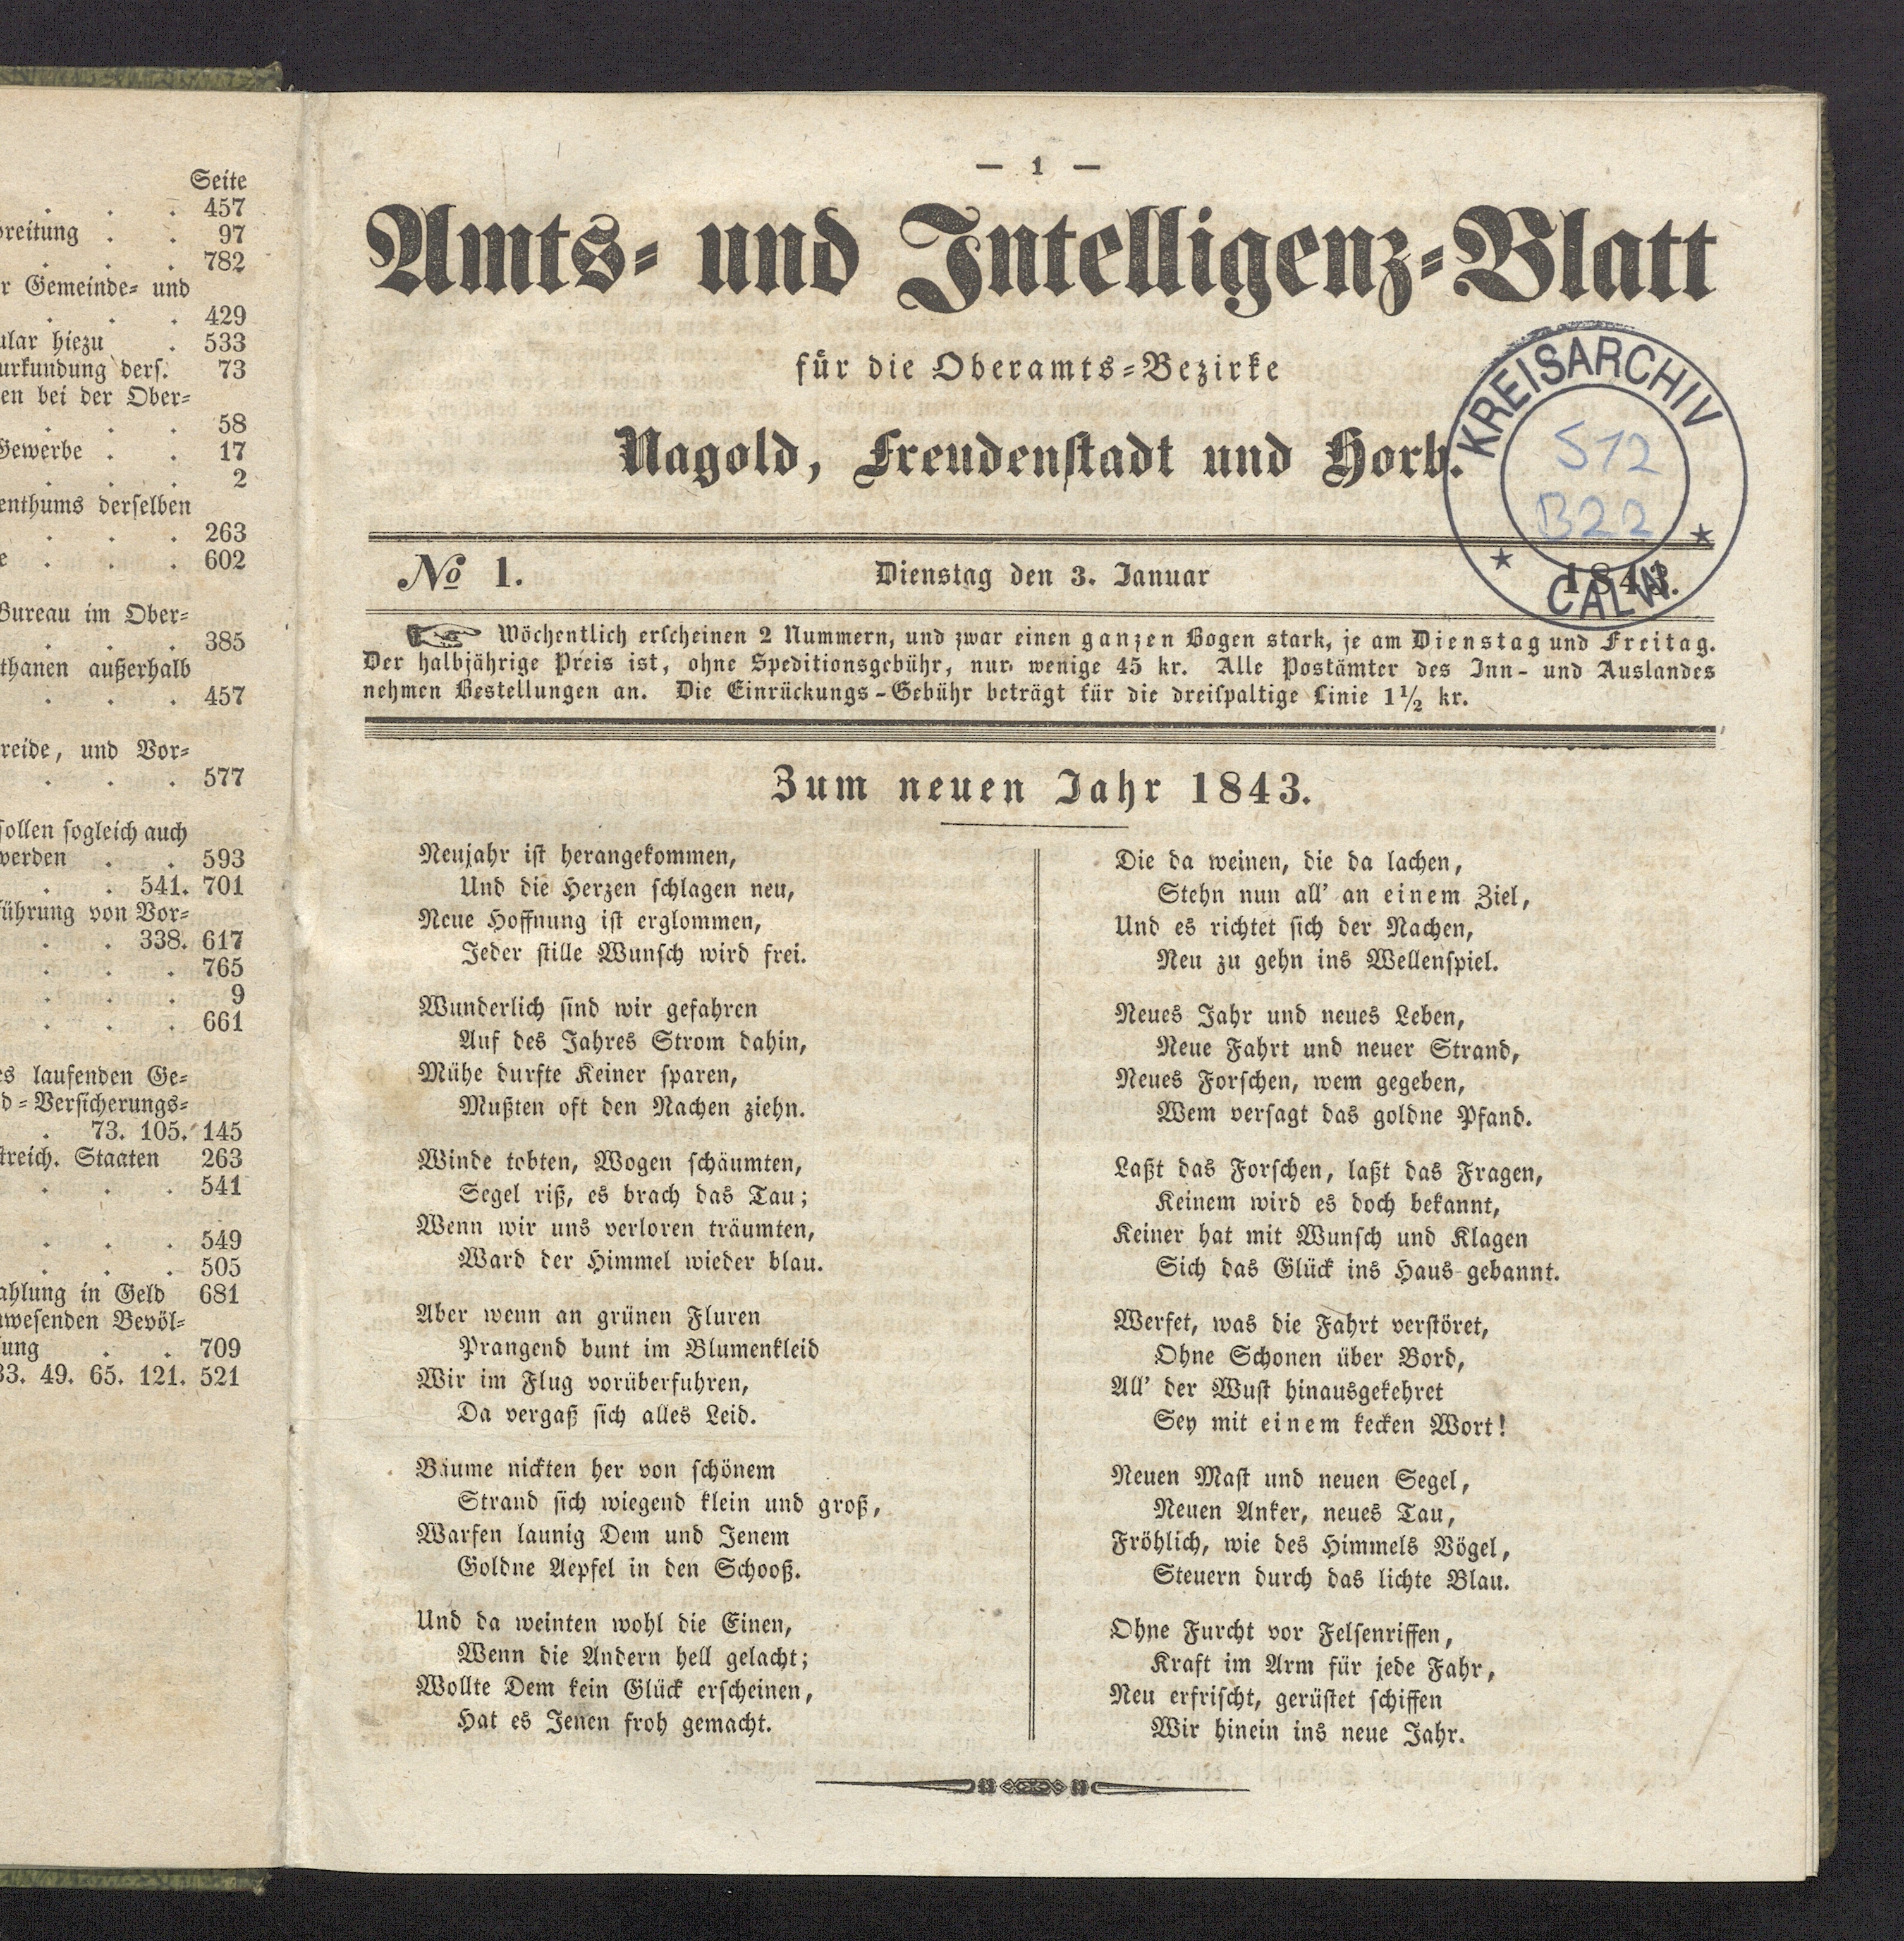 Seite
. . . 457
breitung . . 97
. . . 782
r Gemeinde= und
. . . 429
ular hiezu . 533
urkundung ders. 73
en bei der Ober=
. . . 58
Gewerbe . . 17
. . . 2
enthums derselben
. . . 263
e . . . 602
Bureau im Ober=
. . . 385
thanen außerhalb
. . . 457
reide, und Vor=
. . . 577
sollen sogleich auch
werden . . 593
. . 541. 701
führung von Vor=
. . 338. 617
. . . 765
. . . 9
. . . 661
es laufenden Ge=
d=Versicherungs=
. 73. 105. 145
streich. Staaten 263
. . . 541
. . . 549
. . . 505
ahlung in Geld 681
wesenden Bevöl=
ung . . 709
33. 49. 65. 121. 521
— 1 —
Amts= und Intelligenz=Blatt
für die Oberamts=Bezirke
Nagold, Freudenstadt und Horb.
KREISARCHIV
S12
B22
CALW
No 1. Dienstag den 3. Januar 1843.
☞ Wöchentlich erscheinen 2 Nummern, und zwar einen ganzen Bogen stark, je am Dienstag und Freitag.
Der halbjährige Preis ist, ohne Speditionsgebühr, nur wenige 45 kr. Alle Postämter des Inn- und Auslandes
nehmen Bestellungen an. Die Einrückungs-Gebühr beträgt für die dreispaltige Linie 1½ kr.
Zum neuen Jahr 1843.
Neujahr ist herangekommen,
Und die Herzen schlagen neu,
Neue Hoffnung ist erglommen,
Jeder stille Wunsch wird frei.
Wunderlich sind wir gefahren
Auf des Jahres Strom dahin,
Mühe durfte Keiner sparen,
Mußten oft den Nachen ziehn.
Winde tobten, Wogen schäumten,
Segel riß, es brach das Tau;
Wenn wir uns verloren träumten,
Ward der Himmel wieder blau.
Aber wenn an grünen Fluren
Prangend bunt im Blumenkleid
Wir im Flug vorüberfuhren,
Da vergaß sich alles Leid.
Bäume nickten her von schönem
Strand sich wiegend klein und groß,
Warfen launig Dem und Jenem
Goldne Aepfel in den Schooß.
Und da weinten wohl die Einen,
Wenn die Andern hell gelacht;
Wollte Dem kein Glück erscheinen,
Hat es Jenen froh gemacht.
Die da weinen, die da lachen,
Stehn nun all' an einem Ziel,
Und es richtet sich der Nachen,
Neu zu gehn ins Wellenspiel.
Neues Jahr und neues Leben,
Neue Fahrt und neuer Strand,
Neues Forschen, wem gegeben,
Wem versagt das goldne Pfand.
Laßt das Forschen, laßt das Fragen,
Keinem wird es doch bekannt,
Keiner hat mit Wunsch und Klagen
Sich das Glück ins Haus gebannt.
Werfet, was die Fahrt verstöret,
Ohne Schonen über Bord,
All' der Wust hinausgekehret
Sey mit einem kecken Wort!
Neuen Mast und neuen Segel,
Neuen Anker, neues Tau,
Fröhlich, wie des Himmels Vögel,
Steuern durch das lichte Blau.
Ohne Furcht vor Felsenriffen,
Kraft im Arm für jede Fahr,
Neu erfrischt, gerüstet schiffen
Wir hinein ins neue Jahr.